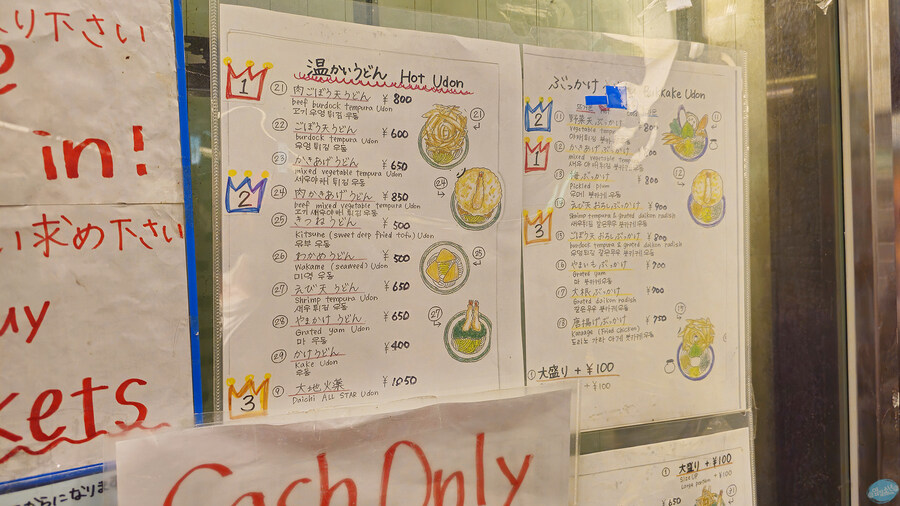 り下さい
in!
い求めて下さい
uy
kets
温かいうどん Hot Udon
1
㉑ 肉ごぼう天うどん ¥800
beef burdock tempura Udon
고기 우엉 튀김 우동
㉒ ごぼう天うどん ¥600
burdock tempura Udon
우엉 튀김 우동
㉓ かきあげうどん ¥650
mixed vegetable tempura Udon
새우야채 튀김 우동
2
㉔ 肉かきあげうどん ¥850
beef mixed vegetable tempura Udon
고기 새우야채 튀김 우동
㉕ きつねうどん ¥500
Kitsune (sweet deep fried tofu) Udon
유부 우동
㉖ わかめうどん ¥500
Wakame (seaweed) Udon
미역 우동
㉗ えび天うどん ¥650
Shrimp tempura Udon
새우 튀김 우동
㉘ やまかけうどん ¥650
Grated yam Udon
마 우동
㉙ かけうどん ¥400
Kake Udon
우동
3
⑨ 大地火薬 ¥1050
Daichi ALL STAR Udon
㉑
㉔
㉕
㉗
ぶっかけ Bukkake Udon
2
⑪ 野菜天ぶっかけ 800
vegetable tempura
1
⑫ かきあげぶっかけ
mixed vegetable tempura
⑬ ぶっかけ ¥800
Pickled plum
⑭ えび天おろしぶっかけ ¥900
Shrimp tempura & grated daikon radish
3
⑮ ごぼう天おろしぶっかけ ¥800
burdock tempura & grated daikon radish
⑯ やまいもぶっかけ ¥700
Grated yam
마 붓카케우동
⑰ 大根ぶっかけ ¥700
Grated daikon radish
⑱ 唐揚げぶっかけ ¥750
Karaage (Fried chicken)
⑪
⑫
① 大盛り + ¥100
+ ¥100
① 大盛り + ¥100
Size UP
Large portion
¥650
㉑
Cash Only